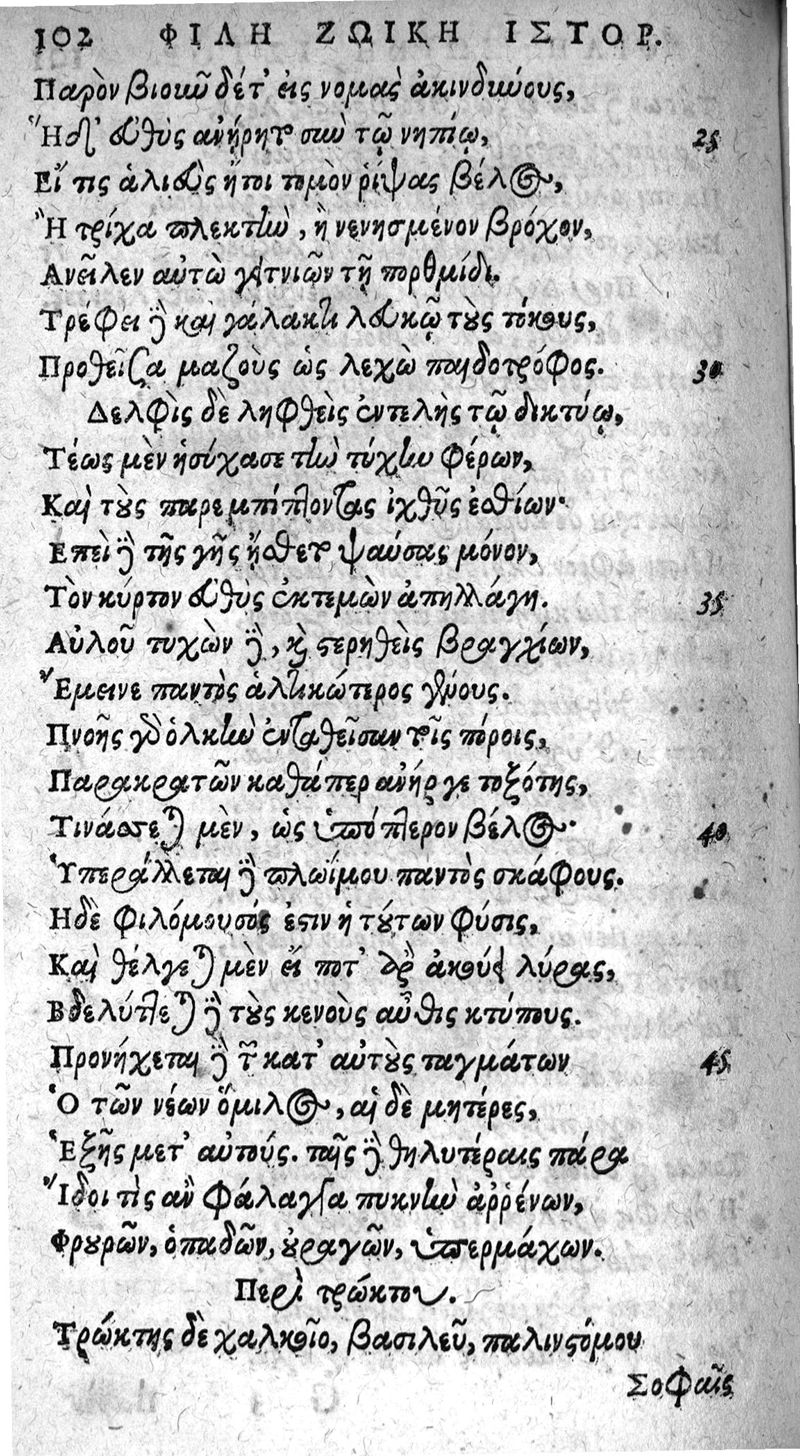 102 ΦΙΛΗ ΖΩΙΚΗ ΙΣΤΟΡ.
Παρὸν βιοιῶ δέτ' εἰς νομὰς ἀκινδιώους,
Ἢ δ' εὐθὺς ἀνῄρητο σιὼ τῷ νηπίῳ, 25
Εἴ τις ἁλιεὺς ἤτοι τομὸν ῥίψας βέλος,
Ἢ τρίχα πλεκτὴν, ἢ νενησμένον βρόχον,
Ανεῖλεν αὐτὼ γειτνιῶν τῇ πορθμίδι.
Τρέφει δὲ καὶ γάλακτι λευκῷ τοὺς τόκους,
Προθεῖσα μαζοὺς ὡς λεχὼ παιδοτρόφος. 30
Δελφὶς δὲ ληφθεὶς ἐντελὴς τῷ δικτύῳ,
Τέως μὲν ἡσύχασε τὴν τύχην φέρων,
Καὶ τοὺς παρεμπίπτοντας ἰχθῦς ἐσθίων·
Επεὶ δὲ τῆς γῆς ᾔσθετο ψαύσας μόνον,
Τὸν κύρτον εὐθὺς ἐκτεμὼν ἀπηλλάγη. 35
Αὐλοῦ τυχὼν δὲ, καὶ στερηθεὶς βραγχίων,
Ἔμεινε παντὸς ἀλκικώτερος γένους.
Πνοῆς γὰρ ὁλκὴν ἐνταθεῖσαν τοῖς πόροις,
Παρακρατῶν καθάπερ ἀνήρ γε τοξότης,
Τινάσσεται μὲν, ὡς ὑπόπτερον βέλος· 40
Ὑπεράλλεται δὲ πλωίμου παντὸς σκάφους.
Ηδὲ φιλόμουσός ἐστιν ἡ τούτων φύσις,
Καὶ θέλγεται μὲν εἴ ποτ' ἂρ ἀκούει λύρας,
Βδελύττεται δὲ τοὺς κενοὺς αὖθις κτύπους.
Προνήχεται δὲ τῶν κατ' αὐτοὺς ταγμάτων 45
Ὁ τῶν νέων ὅμιλος, αἱ δὲ μητέρες,
Ἑξῆς μετ' αὐτούς. ταῖς δὲ θηλυτέραις πάρα
Ἴδοι τὶς ἂν φάλαγγα πυκνὴν ἀῤῥένων,
Φρουρῶν, ὀπαδῶν, οὐραγῶν, ὑπερμάχων.
Περὶ τρώκτου.
Τρώκτης δὲ χαλκεῖο, βασιλεῦ, παλινστόμου
Σοφαῖς